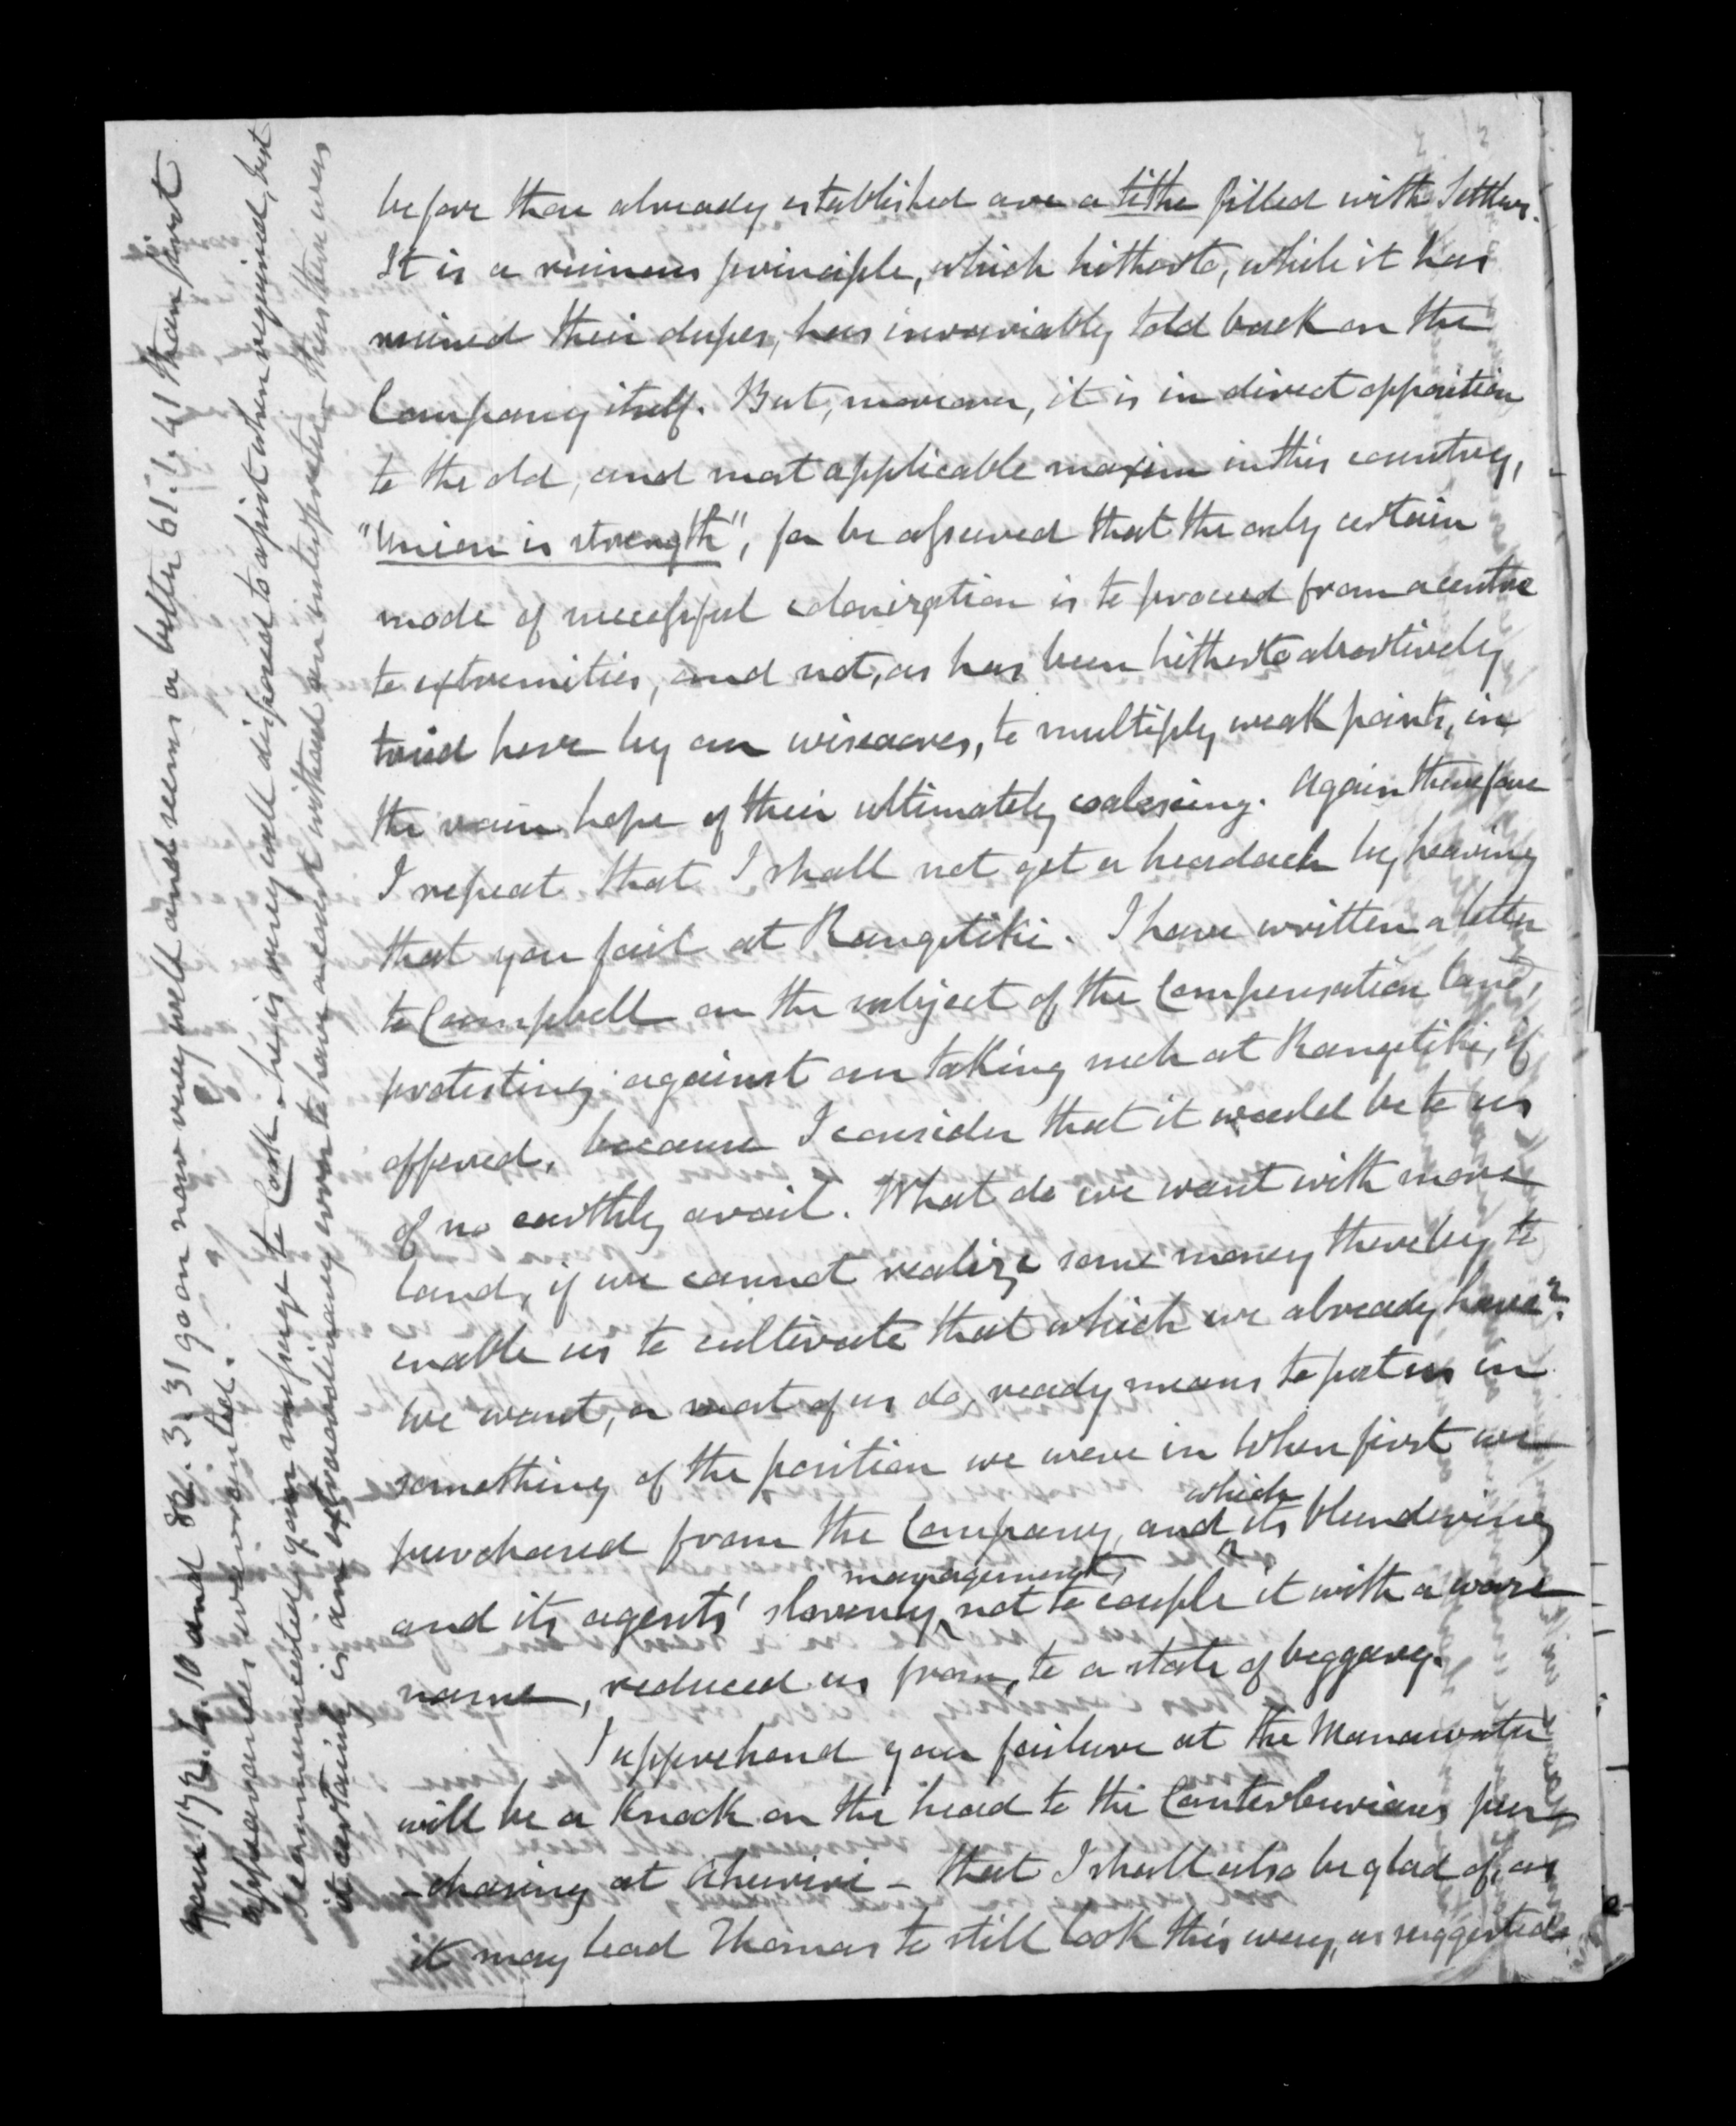 before those already established are a tithe filled with Settlers.
It is a ruinous principle, which hitherto, while it has
ruined their dupes, has invariably told back on the
Company itself. But, moreover, it is in direct opposition
to the old, and most applicable maxim in this country,
"Union is strength", for be assured that the only certain
mode of successful colonization is to proceed from a centre
to extremities, and not, as has been hitherto abortively
tried here by our wiseacres, to multiply weak points, in
the vain hope of their ultimately coalescing. Again therefore
I repeat that I shall not get a headach by hearing
that you fail at Rangitiki. I have written a letter
to Campbell on the subject of the Compensation land,
protesting against our taking such at Rangitiki, if
offered, because I consider that it would be to us
of no earthly avail. What do we want with more
land, if we cannot realize some money thereby to
enable us to cultivate that which we already have?
We want, or most of us do, ready means to put us in
something of the position we were in when first we
purchased from the Company, and which its blundering
and its agents' slovenly management, not to couple it with a worse
name, reduced us from, to a state of beggary.
I apprehend your failure at the Manawatu
will be a Knock on the head to the Canterburians pur
-chasing at Ahuriri - that I shall also be glad of, as
it may lead Thomas to still look this way, as suggested.
your 172. 6. 10 and 82. 3. 31 go on now very well and seems a better 61. 1. 41 than first
appearances warranted.
I communicated your message to Cook - he is very well disposed to assist when required, but
it certainly is an extraordinary error to have a court without an interpreter - thus there was